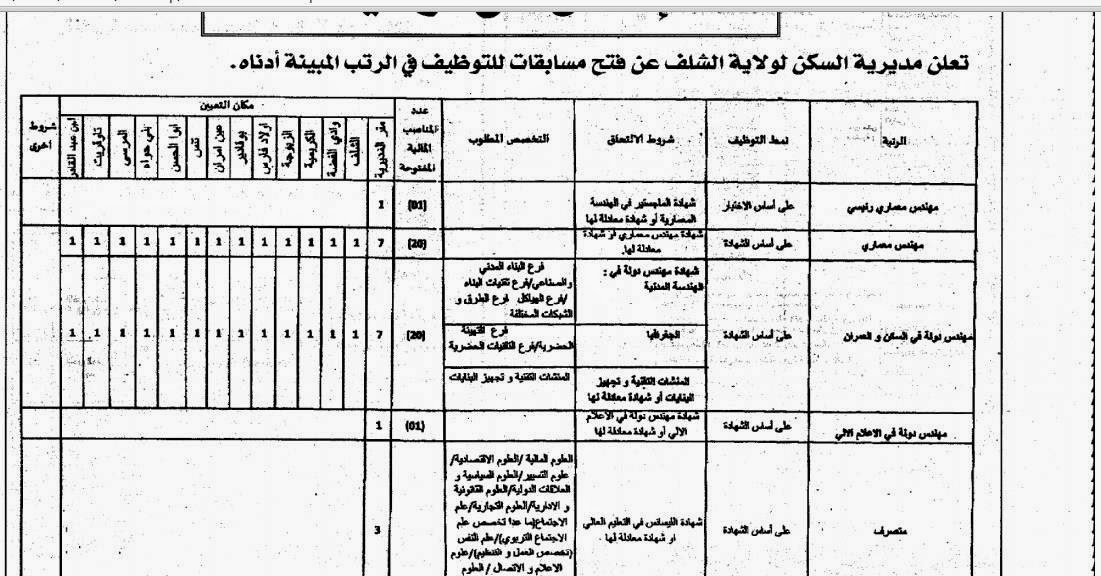 تعلن مديرية السكن لولاية الشلف عن فتح مسابقات للتوظيف في الرتب المبينة أدناه.
الرتبة
نمط التوظيف
شروط الالتحاق
التخصص المطلوب
عدد
المناصب
المالية
المفتوحة
مكان التعيين
مقر المديرية
الشلف
وادي الفضة
الكريمية
الزبوجة
اولاد فارس
بوقادير
عين امران
تنس
ابوا الحسن
بني حواء
المرسى
تاوقريت
شروط
أخرى
مهندس معماري رئيسي
على أساس الاختبار
شهادة الماجستير في الهندسة
المعمارية أو شهادة معادلة لها
(01)
1
مهندس معماري
على أساس الشهادة
شهادة مهندس معماري او شهادة
معادلة لها.
(20)
7 1 1 1 1 1 1 1 1 1 1 1 1 1
مهندس دولة في السكن و العمران
على أساس الشهادة
شهادة مهندس دولة في :
الهندسة المدنية
فرع البناء المدني
والصناعي/فرع تقنيات البناء
/فرع الهياكل فرع الطرق و
الشبكات المختلفة
الجغرافيا
فرع التهيئة
الحضرية/فرع التقنيات الحضرية
المنشات التقنية و تجهيز
البنايات أو شهادة معادلة لها
المنشات التقنية و تجهيز البنايات
(20)
7 1 1 1 1 1 1 1 1 1 1 1 1 1
مهندس دولة في الاعلام الالي
على أساس الشهادة
شهادة مهندس دولة في الاعلام
الالي أو شهادة معادلة لها
(01)
1
متصرف
على أساس الشهادة
شهادة الليسانس في التعليم العالي
او شهادة معادلة لها .
العلوم المالية /العلوم الاقتصادية/
علوم التسيير/العلوم السياسية و
العلاقات الدولية/العلوم القانونية
و الادارية/العلوم التجارية/علم
الاجتماع(ما عدا تخصص علم
الاجتماع التربوي)/علم النفس
(تخصص العمل و التنظيم)/علوم
الاعلام و الاتصال / العلوم
3